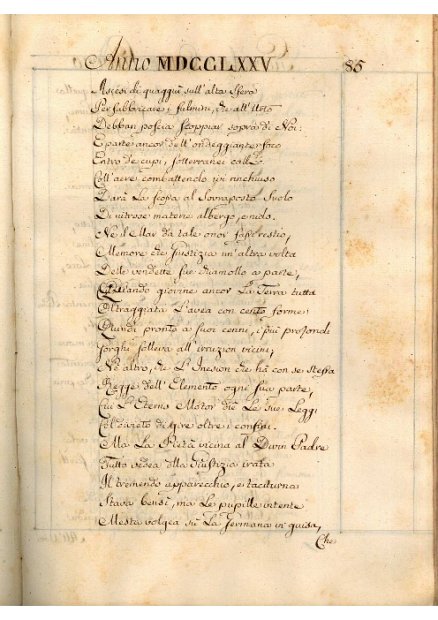 Anno MDCCLXXV 85
Ascesi di quaggiù sull'alta sfera
Per fabbricare i fulmini, che all'
Debban poscia scoppiar sopra di Noi:
E parte ancor dell'ondeggiante foco
Entro de cupi, sotterranei calli
Coll'aere combattendo ivi rinchiuso
Darà La scossa al Sovraposto Suolo
Di vitrose materie albergo, e nido.
Ne il Mar da tale onor fassi restio,
Memore che Giustizia un'altra volta
Delle vendette sue chiamollo a parte,
Quando giovine ancor La Terra tutta
Oltraggiata L'avea con cento forme:
Quindi pronto a suoi cenni, i più profondi
Gorghi solleva all'irruzion vicini,
Ne altro, che L' che hà con se stessa
Regge dell'Elemento ogni sua parte,
Cui L'Eterno Motor diè Le sue Leggi
Col divieto di gire oltre i confini.
Ma La Pietà vicina al Divin Padre
Tutto vedea della Giustizia irata
Il tremendo apparecchio, e taciturna
Stava bensì, ma Le pupille intente
Mesta volgea sù La Germana in guisa,
Che